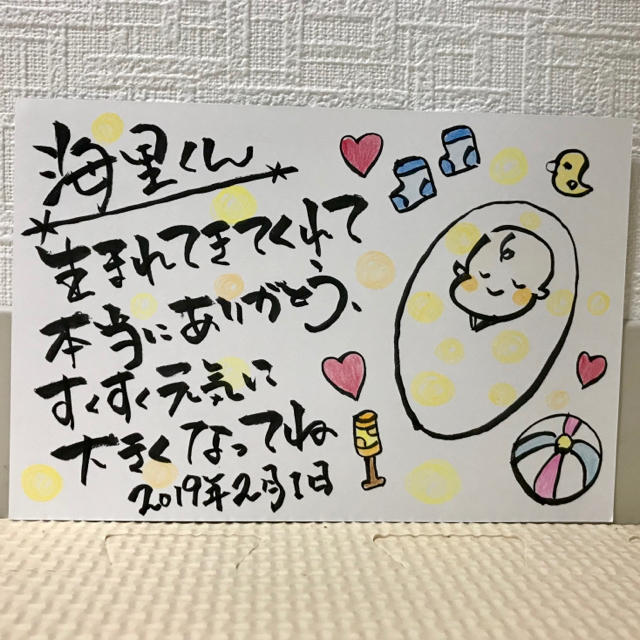 海里くん
生まれてきてくれて
本当にありがとう、
すくすく元気に
大きくなってね
2019年2月1日